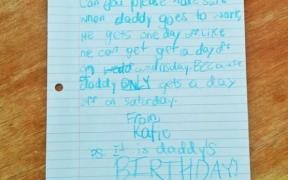 Can you please make sure
when daddy goes to work,
He gets one day off. Like
he can get get a day off
on wednesday. BECAUSE
daddy ONLY gets a day
off on saturday.
From
Katie
is daddy's
BIRTHDAY!